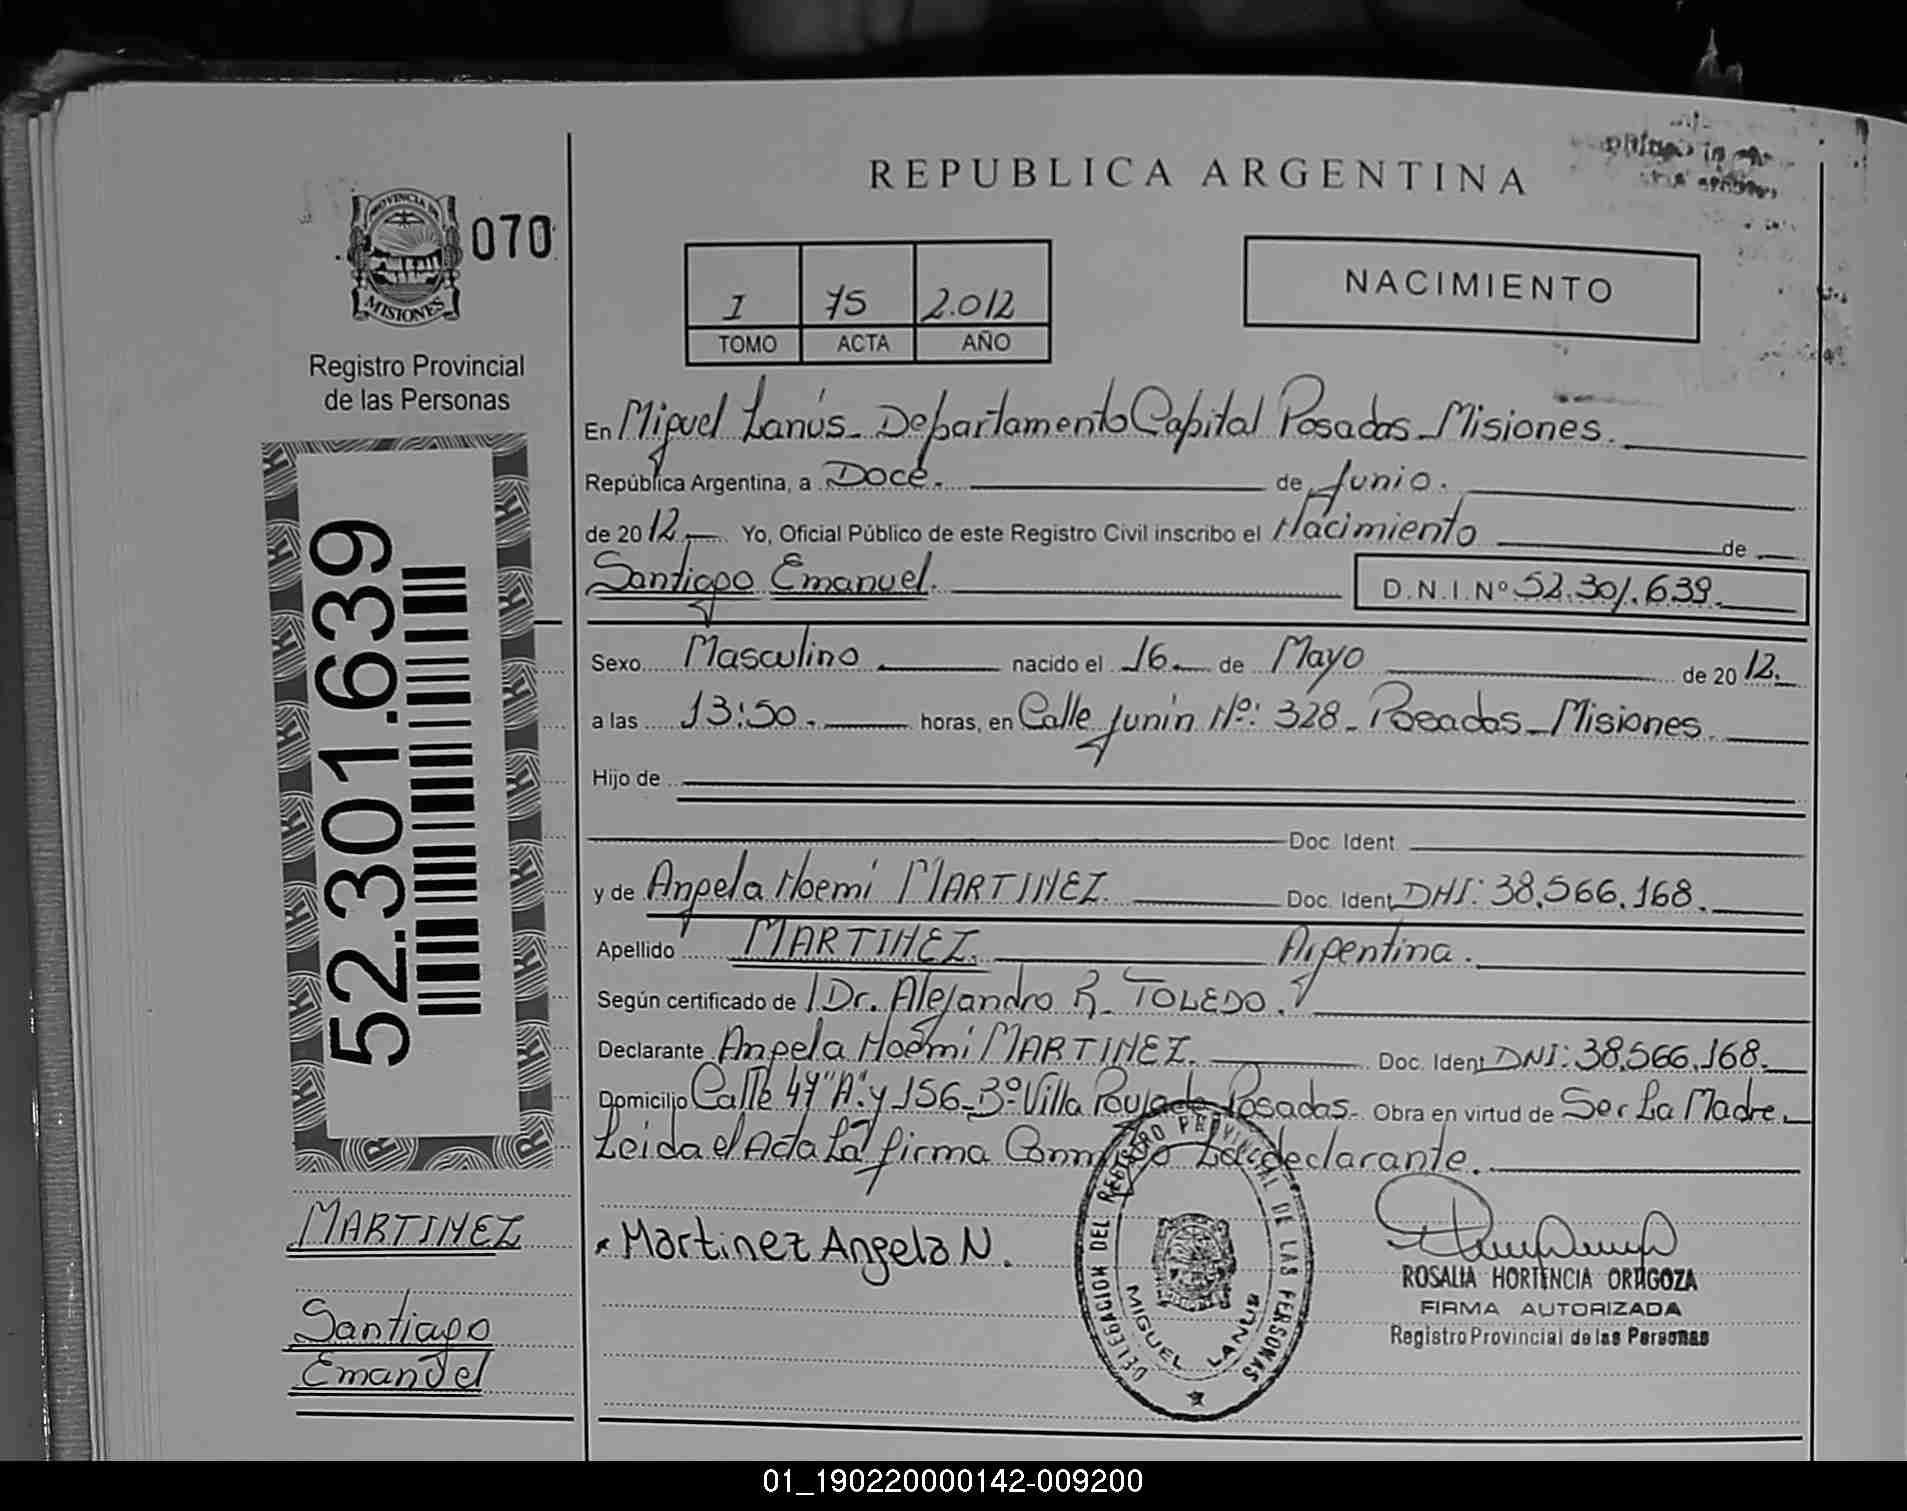 REPUBLICA ARGENTINA
PROVINCIA DE
MISIONES
070
Registro Provincial
de las Personas
I 75 2.012
TOMO ACTA AÑO
NACIMIENTO
En Miguel Lanús - Departamento Capital Posadas - Misiones.
República Argentina, a Doce. de Junio.
de 2012 Yo, Oficial Público de este Registro Civil inscribo el Nacimiento de
Santiago Emanuel. D.N.I.Nº 52.301.639.
Sexo Masculino nacido el 16 de Mayo de 2012.
a las 13:50. horas, en Calle Junín Nº: 328 - Posadas - Misiones.
Hijo de
Doc. Ident.
y de Angela Noemi MARTINEZ. Doc. Ident. DNI: 38.566.168.
Apellido MARTINEZ. Argentina.
Según certificado de Dr. Alejandro R. TOLEDO.
Declarante Angela Noemi MARTINEZ. Doc. Ident. DNI: 38.566.168.
Domicilio Calle 47 "A" y 156 - Bº Villa Posadas - Obra en virtud de Ser La Madre.
Leida el Acta La firma Conmigo La declarante.
52.301.639
MARTINEZ
Santiago
Emanuel
Martinez Angela N.
DELEGACION DEL REGISTRO PROVINCIAL DE LAS PERSONAS
MIGUEL LANUS
ROSALIA HORTENCIA ORAGOZA
FIRMA AUTORIZADA
Registro Provincial de las Personas
01_190220000142-009200